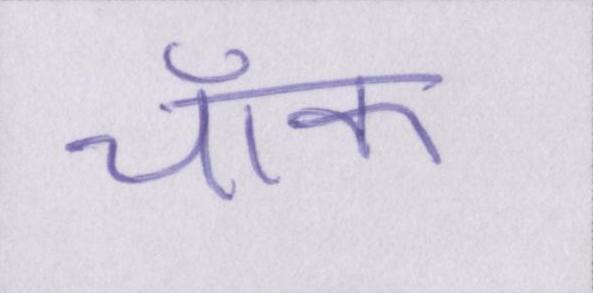 चॉक